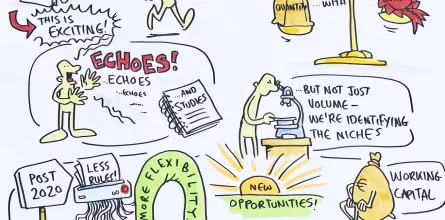 THIS IS
EXCITING!
QUANTITY
...WITH
ECHOES!
..ECHOES
...ECHOES
...AND
STUDIES
...BUT NOT JUST
VOLUME –
WE'RE IDENTIFYING
THE NICHES
POST
2020
LESS
RULES!
MORE FLEXIBILITY
NEW
OPPORTUNITIES!
WORKING
CAPITAL